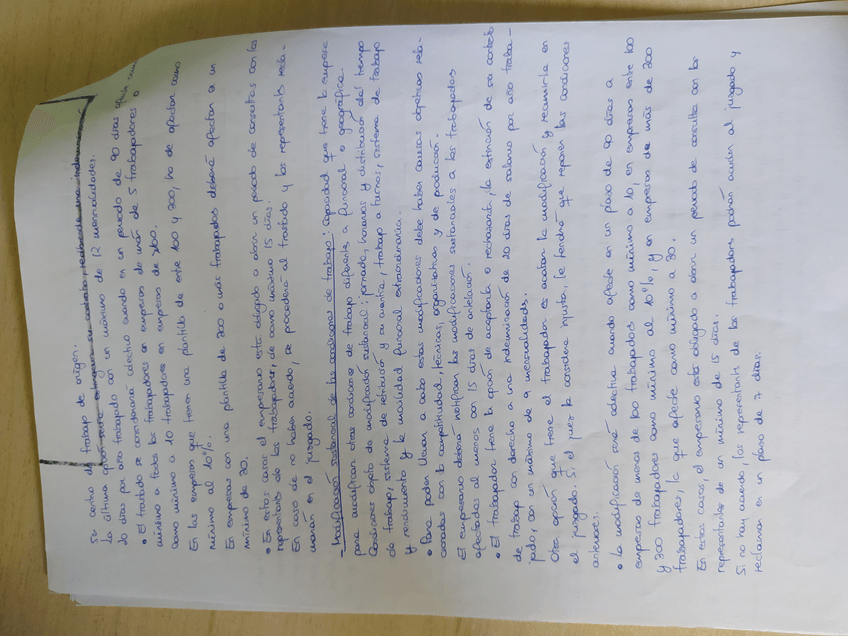 su centro de trabajo de origen.
La última opción sería extinguir su contrato, recibiendo una indemnización
20 días por año trabajado con un máximo de 12 mensualidades.
• El traslado se considerará colectivo cuando en un periodo de 90 días afecte
mínimo a todos los trabajadores en empresas de más de 5 trabajadores o
como mínimo a 10 trabajadores en empresas de
En las empresas que tienen una plantilla de entre 100 y 300, ha de afectar como
mínimo al 10%.
En empresas con una plantilla de 300 o más trabajadores deberá afectar a un
mínimo de 30.
• En estos casos el empresario está obligado a abrir un periodo de consultas con los
representantes de los trabajadores, de como máximo 15 días.
En caso de no haber acuerdo, se procederá al traslado y los representantes recla-
marán en el juzgado.
- Modificación sustancial de las condiciones de trabajo: Capacidad que tiene la empresa
para modificar otras condiciones de trabajo diferente a funcional o geográfica.
Condiciones objeto de modificación sustancial: jornada, horarios y distribución del tiempo
de trabajo, sistema de retribución y su cuantía, trabajo a turnos, sistema de trabajo
y rendimiento y la movilidad funcional extraordinaria.
• Para poder llevar a cabo estas modificaciones debe haber causas objetivas rela-
cionadas con la competitividad, técnicas, organizativas y de producción.
El empresario deberá notificar las modificaciones sustanciales a los trabajadores
afectados al menos con 15 días de antelación.
• El trabajador tiene la opción de aceptarla o rechazarla, la extinción de su contrato
de trabajo con derecho a una indemnización de 20 días de salario por año traba-
jado, con un máximo de 9 mensualidades.
Otra opción que tiene el trabajador es acatar la modificación y recurrirla en
el juzgado. Si el juez la considera injusta, le tendrá que reponer las condiciones
anteriores.
• La modificación será colectiva cuando afecte en un plazo de 90 días a
empresas de menos de 100 trabajadores como mínimo a 10, en empresas entre 100
y 300 trabajadores como mínimo al 10%, y en empresas de más de 300
trabajadores, la que afecte como mínimo a 30.
En estos casos, el empresario está obligado a abrir un periodo de consulta con los
representantes de un mínimo de 15 días.
Si no hay acuerdo, los representante de los trabajadores podrán acudir al juzgado y
reclamar en un plazo de 7 días.